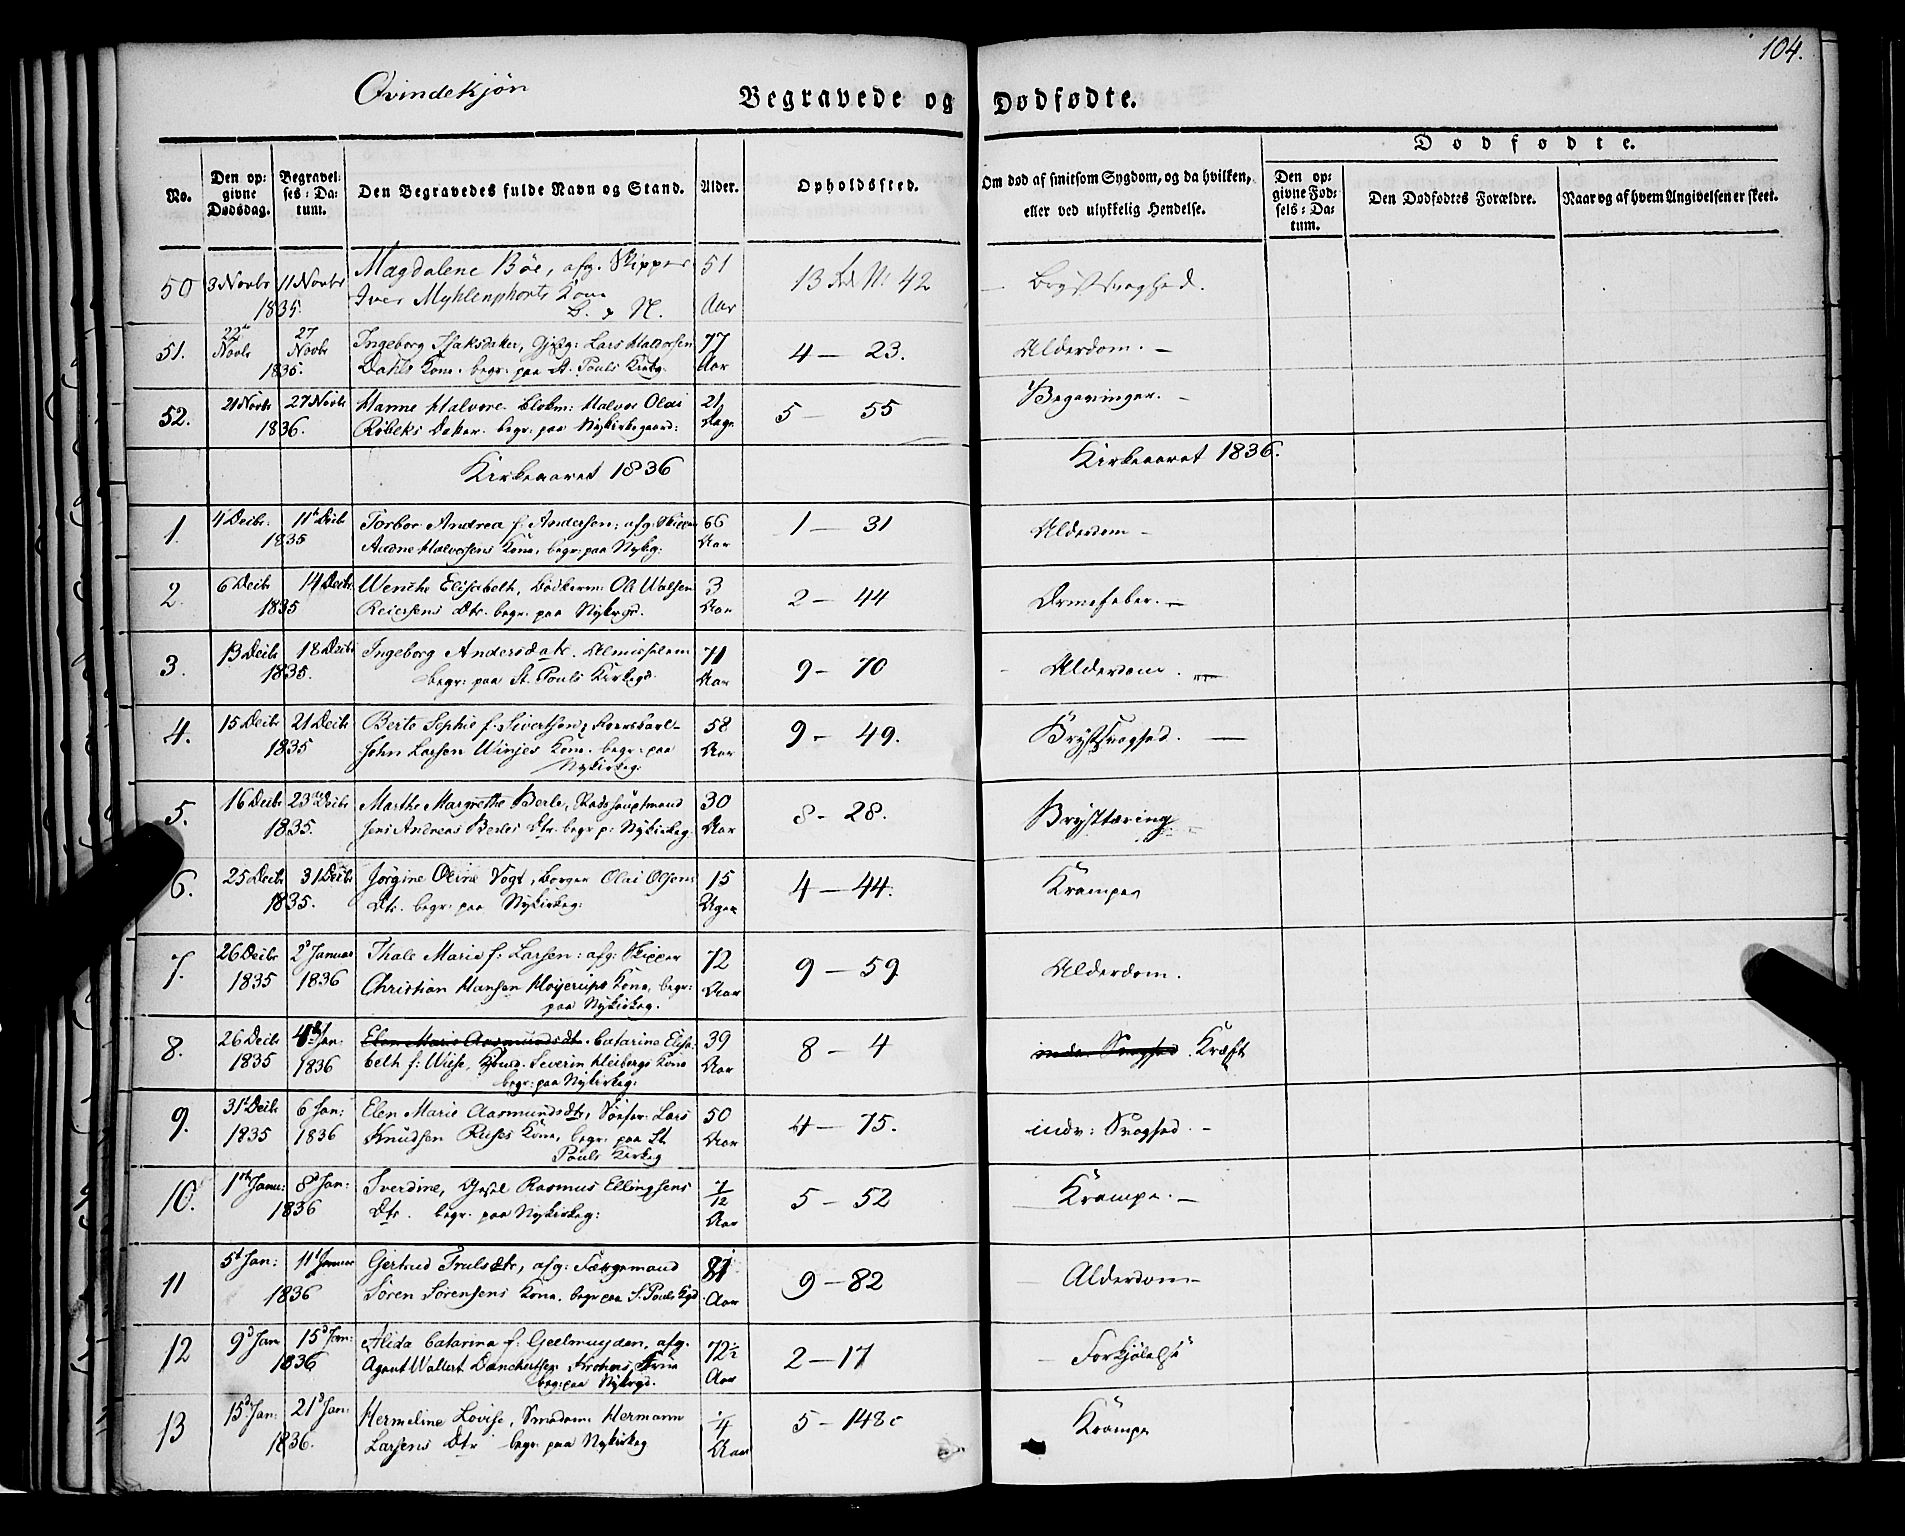 104.
Qvindekjön
Begravede og Dödfödte.
No.
Den opgivne Dödsdag.
Begravelses-Datum.
Den Begravedes fulde Navn og Stand.
Alder.
Opholdssted.
Om död af smitsom Sygdom, og da hvilken, eller ved ulykkelig Hendelse.
Dödfödte.
Den opgivne Födsels-Datum.
Den Dödfödtes Forældre.
Naar og af hvem Angivelsen er skeet.
50 3 Novbr 11 Novbr Magdalene Böe, afg. Skipper 51
1835. Iver Kone Aar 13 Rd N: 42 Brystsvaghed.
51. 22de Novbr 27 Novbr Ingeborg Gjestg: Lars Halvorsen 77
1835. Dahls Kone. begr. paa St. Pouls Kirkeg. Aar 4 — 23. Alderdom. —
52. 21 Novbr 27 Novbr Hanne Halvore. Halvor Olai 21
1836. Röbeks Datter. begr: paa Nykirkegaard: Dage 5 — 55 Begevninger. —
Kirkeaaret 1836 Kirkeaaret 1836.
1. 4 Decbr. 11t Decbr Torbor Andrea f. Andersen: afg. Skipper 66
1835 Halvorsens Kone, begr: paa Nykg: Aar 1 — 31 Alderdom —
2. 6 Decbr 14 Decbr. Wenche Elisabeth, Bödkerm: Ole 3
1835 Reiersens Dtr. begr. paa Nykrgd. Aar 2 — 44 Ormefeber. —
3. 13 Decbr 18 Decbr Ingeborg Andersdatr. Almisselem 71
1835. begr: paa St. Pouls Kirkegd. Aar 9 — 70 Alderdom.
4. 15 Decbr 21 Decbr Berte Sophie f: Sivertsen, 58
1835 John Larsen Winjes Kone. begr: paa Aar
Nykirkeg: 9 — 49. Brystsvaghed. —
5. 16 Decbr 23de Decbr Marthe Margrethe Berle, 30
1835. Jens Andreas Berles Dtr. begr p: Nykirkeg. Aar 8 — 28. Brysttæring
6. 25 Decbr 31 Decbr Jörgine Oline Vogt, Borger Olai Olsens 15
1835. Dtr. begr: paa Nykirkeg: Uger 4 — 44. Kramper
7. 26 Decbr 2d Januar Thale Marie f: Larsen: afg: Skipper 72
1835 1836 Christian Hansen Höyerups Kone, begr: Aar
paa Nykirkeg. 9 — 59 Alderdom.
8. 26 Decbr 4de Jan: Elen Marie Aasmundsdtr. Catarina Elisa- 39
1835 1836 beth f: Wiese, Severin Heibergs Kone Aar
begr: paa Nykirkeg: 8 — 4 indv. Svaghed Kræft
9. 31t Decbr 6 Jan: Elen Marie Aasmundsdtr, Söefar: Lars 50
1835 1836 Knudsen Kone, begr: paa St. Aar
Pouls Kirkeg 4 — 75. indv: Svaghed. —
10. 1ste Janr: 8d Jan: Iverdine, Rasmus Ellingsens 7/12
1836 Dtr. begr. paa Nykirkeg: Aar 5 — 52 Krampe. —
11 5t Jan: 11t Januar Gertrud Trulsdtr, afg: Færgemand
1836 Sören Sörensens Kone. begr: paa St. Pouls Kgd. Aar 9 — 82 Alderdom —
12 9d Jan 15d Jan: Alida Catarina f: Geelmuyden, afg. 72½
1836 Agent Wollert Danckertsen Krohns Enke Aar
begr: paa Nykrgd. 2 — 17 Forkjölelse
13 15d Jan: 21d Jan: Hermeline Lovise, Smedsm: Hermann ¼
1836. Larsens Dtr begr. paa Nykirkeg Aar 5 — 148c Krampe